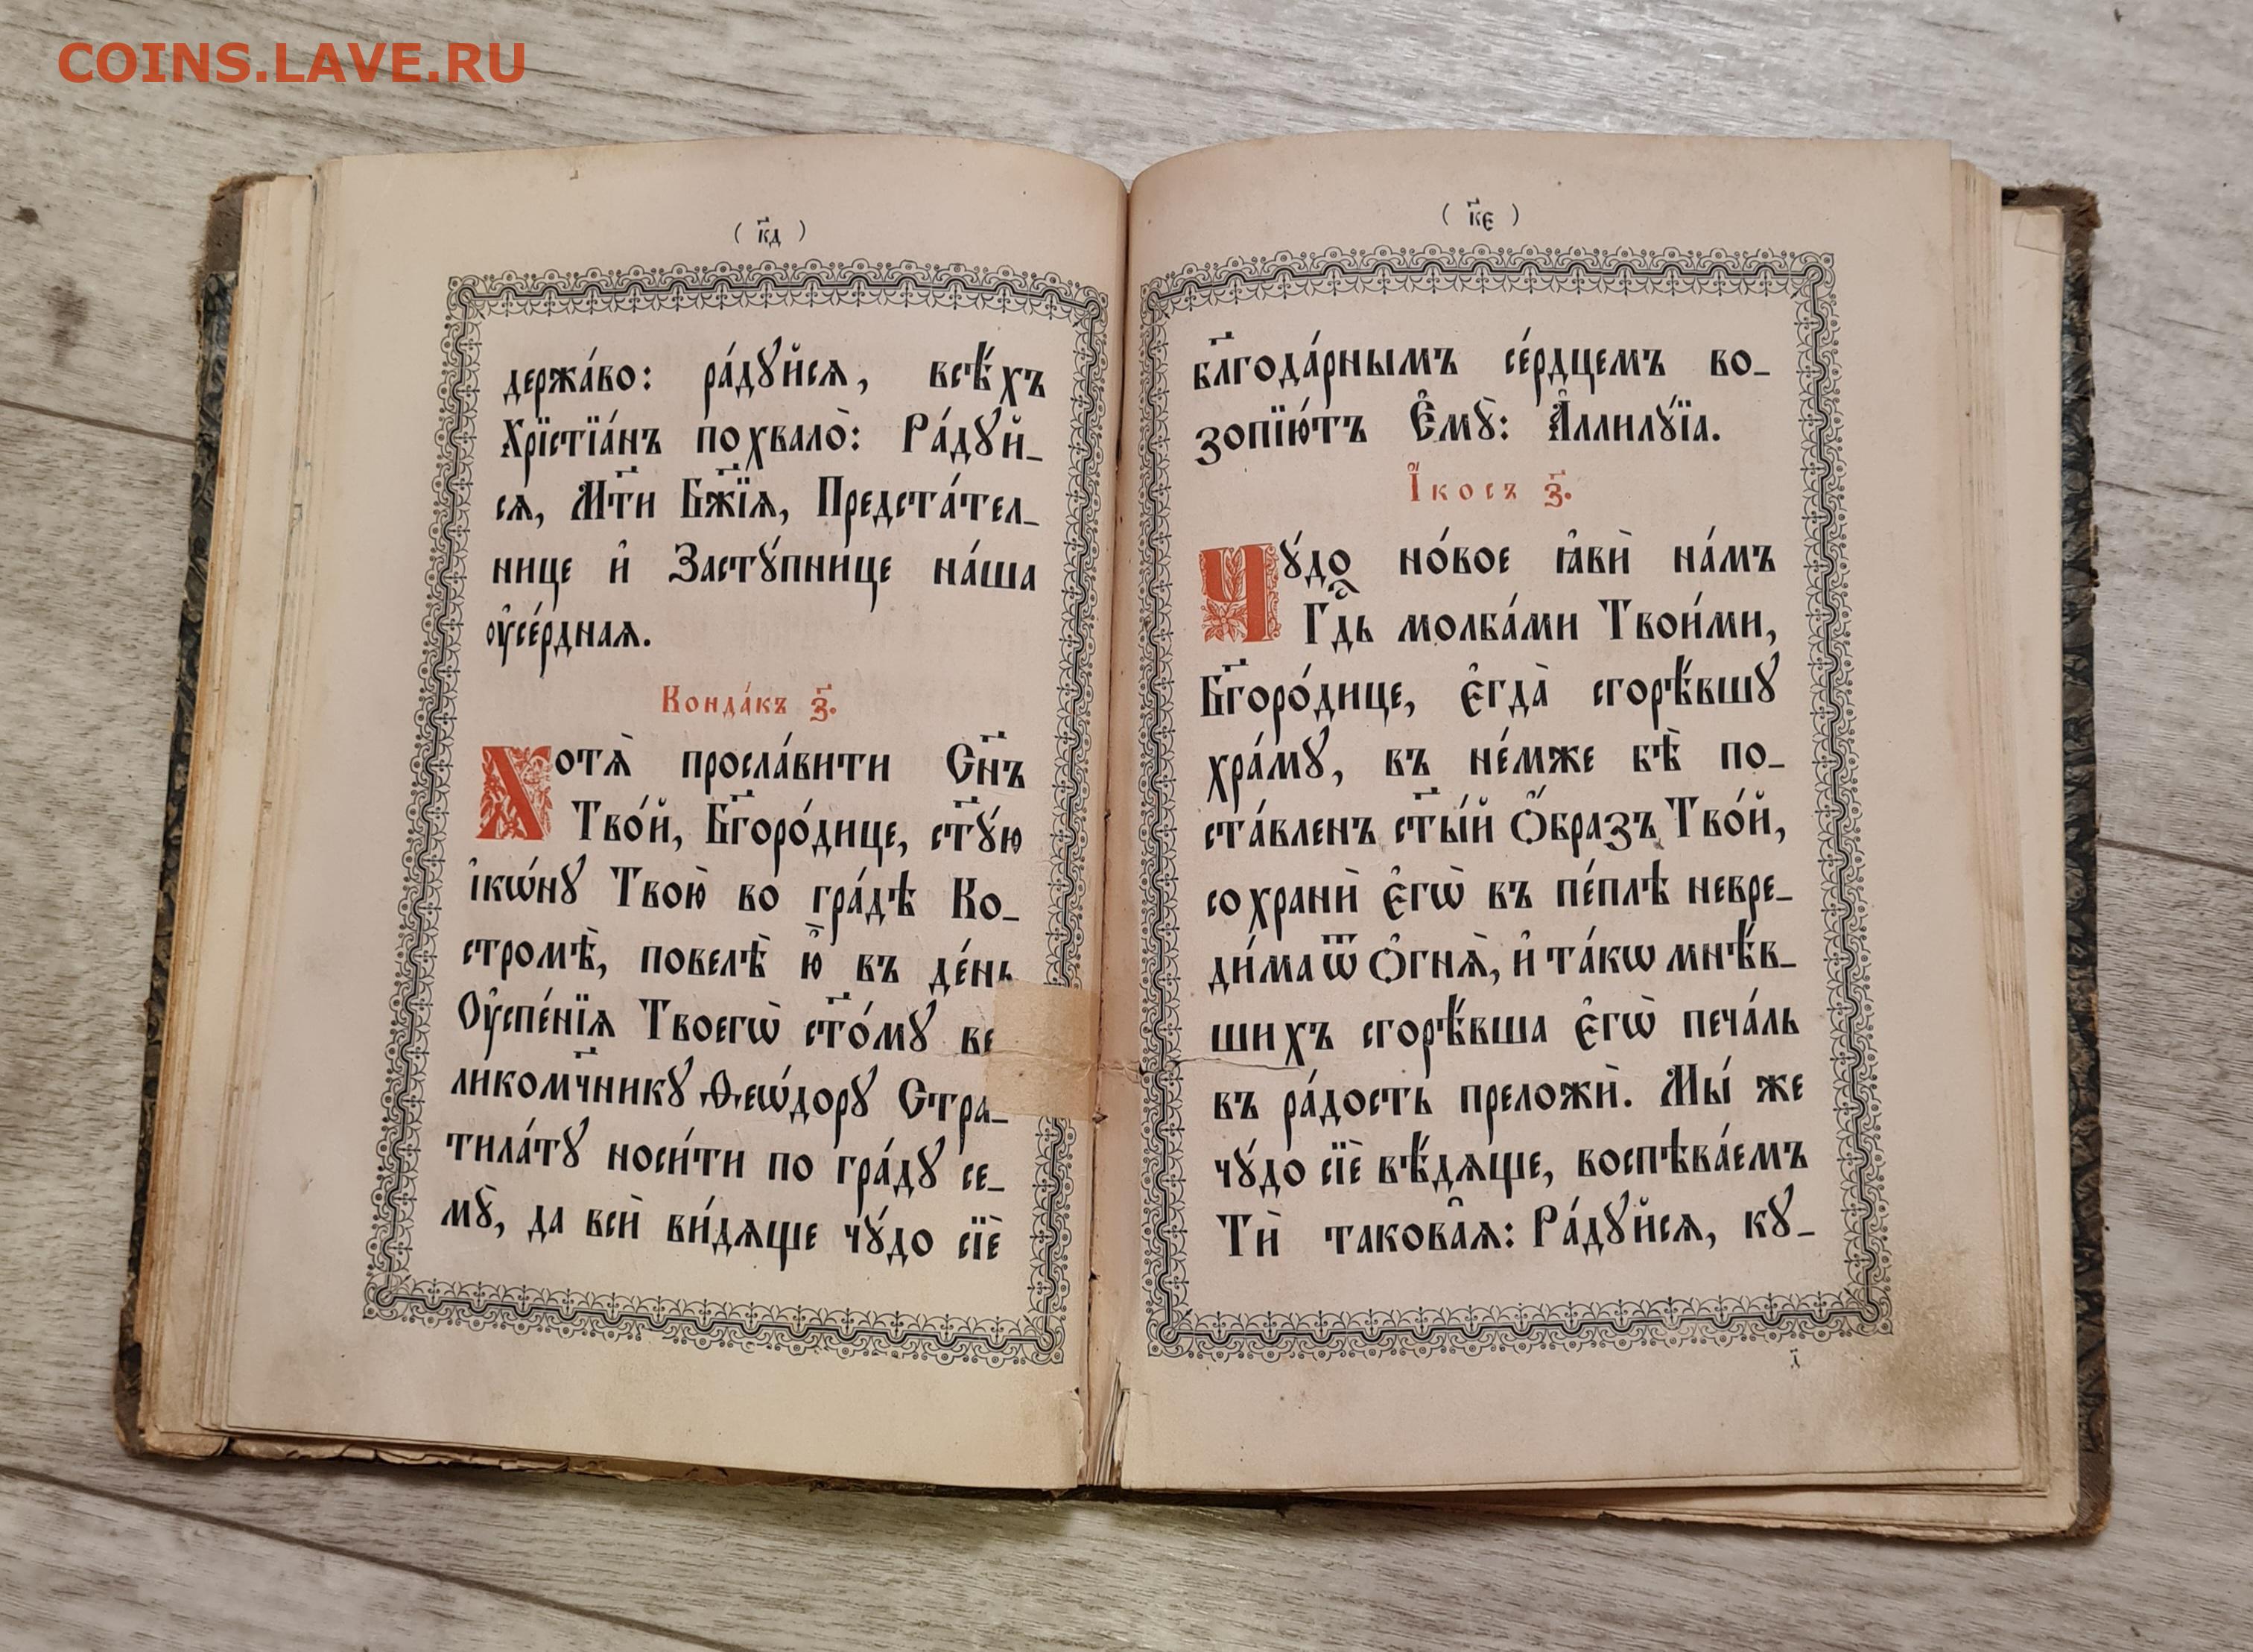 COINS.LAVE.RU
( к҃д )
держа́во: ра́дꙋйсѧ, всѣ́хъ
Хрїстїа́нъ похвало̀: Ра́дꙋй_
сѧ, Мт҃и Бж҃їѧ, Предста́тел_
нице и҆ Застꙋ́пнице на́ша
ᲂу҆се́рднаѧ.
Конда́къ з҃.
Хотѧ̀ просла́вити Сн҃ъ
Тво́й, Бг҃оро́дице, ст҃ꙋ́ю
і҆кѡ́нꙋ Твою̀ во гра́дѣ Ко_
стромѣ̀, повелѣ̀ ю҆̀ въ де́нь
Оу҆спе́нїѧ Твоегѡ̀ ст҃о́мꙋ ве
ликомч҃никꙋ Ѳеѡ́дорꙋ Стра_
тила́тꙋ носи́ти по гра́дꙋ се_
мꙋ̀, да всѝ ви́дѧще чꙋ́до сїѐ
( к҃є )
бл҃года́рнымъ се́рдцемъ во_
зопїю́тъ Є҆мꙋ̀: А҆ллилꙋ́їа.
І҆́косъ з҃.
Чꙋ́до но́вое ꙗ҆вѝ на́мъ
Гдⷭ҇ь молба́ми Твои́ми,
Бг҃оро́дице, є҆гда̀ сгорѣ́вшꙋ
хра́мꙋ, въ не́мже бѣ̀ по_
ста́вленъ ст҃ы́й Ѻ҆́бразъ Тво́й,
сохранѝ є҆гѡ̀ въ пе́плѣ невре_
ди́ма ѿ Ѻ҆гнѧ̀, и҆ та́кѡ мнѣ́в_
шихъ сгорѣ́вша є҆гѡ̀ печа́ль
въ ра́дость преложѝ. Мы́ же
чꙋ́до сїѐ вѣ́дѧще, воспѣва́емъ
Тѝ такова̑ѧ: Ра́дꙋйсѧ, кꙋ_